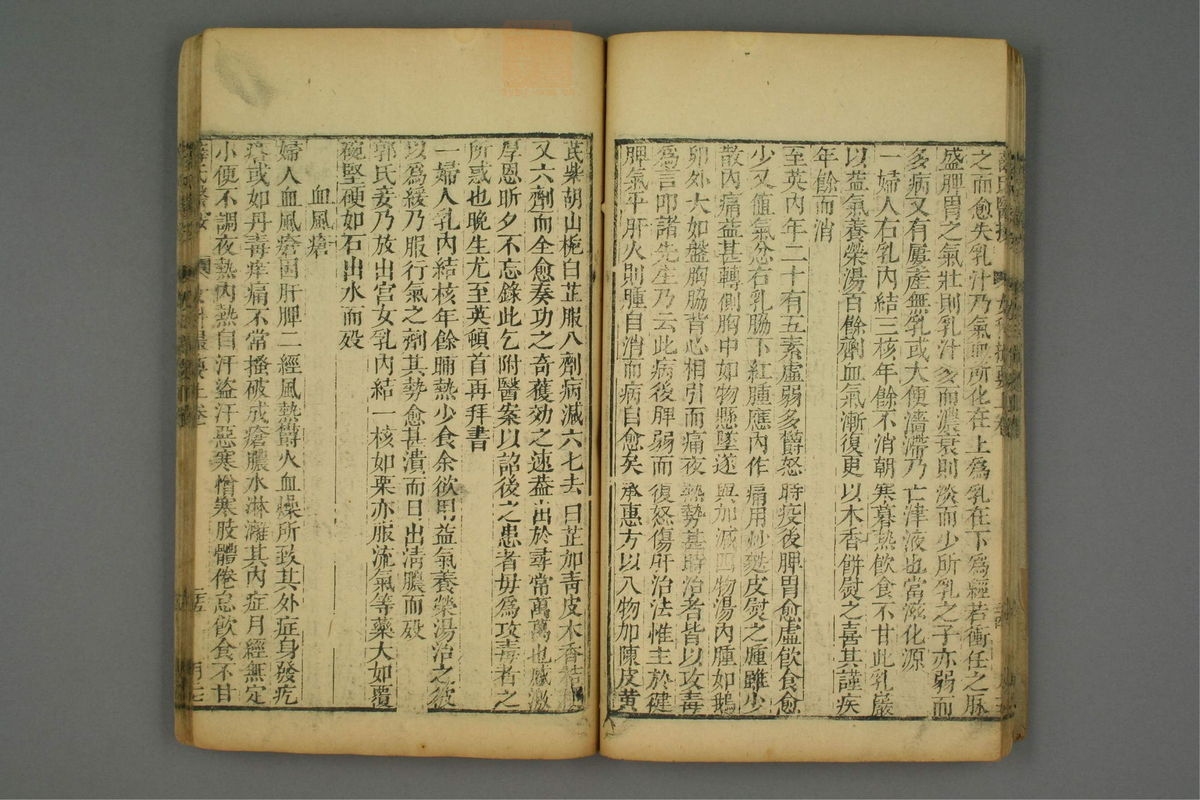 之而愈夫乳汁乃氣血所化在上爲乳在下爲經若衝任之脉
盛脾胃之氣壯則乳汁多而濃衰則淡而少所乳之子亦弱而
多病又有屢產無乳或大便濇滯乃亡津液也當滋化源
一婦人右乳內結三核年餘不消朝寒暮熱飲食不甘此乳巖
以益氣養榮湯百餘劑血氣漸復更以木香餅熨之喜其謹疾
年餘而消
至英內年二十有五素虛弱多欝怒時疫後脾胃愈虛飲食愈
少又値氣忿右乳脇下紅腫應內作痛用炒麩皮熨之腫雖少
散內痛益甚轉側胸中如物懸墜遂與加減四物湯內腫如鵝
卵外大如盤胸脇背心相引而痛夜熱勢甚時治者皆以攻毒
爲言叩諸先生乃云此病後脾弱而復怒傷肝治法惟主於健
脾氣平肝火則腫自消而病自愈矣承惠方以八物加陳皮黃
芪柴胡山梔白芷服八劑病減六七去白芷加靑皮木香桔
又六劑而全愈奏功之奇獲効之速葢出於尋常萬萬也感激
厚恩昕夕不忘錄此乞附醫案以詔後之患者毋爲攻毒者之
所惑也晚生尤至英頓首再拜書
一婦人乳內結核年餘晡熱少食余欲用益氣養榮湯治之彼
以爲緩乃服行氣之劑其勢愈甚潰而日出淸膿而歿
郭氏妾乃放出宮女乳內結一核如栗亦服流氣等藥大如覆
碗堅硬如石出水而歿
血風瘡
婦人血風瘡因肝脾二經風熱欝火血燥所致其外症身發疙
瘩或如丹毒痒痛不常搔破成瘡膿水淋漓其內症月經無定
小便不調夜熱內熱自汗盜汗惡寒憎寒肢體倦怠飲食不甘